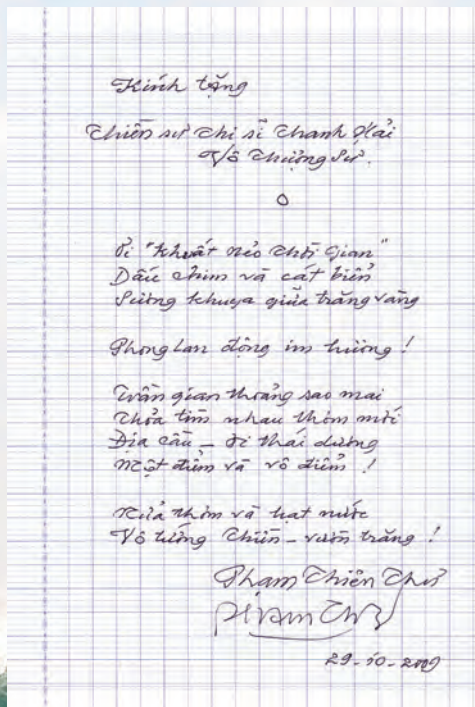 Kính tặng
Thiền sư Thi sĩ Thanh Hải
Vô Thượng Sư.
Đi "khuất nẻo thời gian"
Dấu chim và cát biển
Sương khuya giữa trăng vàng
Phong Lan động im hương!
Trần gian thoảng sao mai
Thỏa tìm nhau thôn mới
Địa cầu – đi thái dương
Một điểm và vô điểm!
Nửa thôn và hạt nước
Vô tướng Thiền – vườn trăng!
Phạm Thiên Thư
29-10-2009